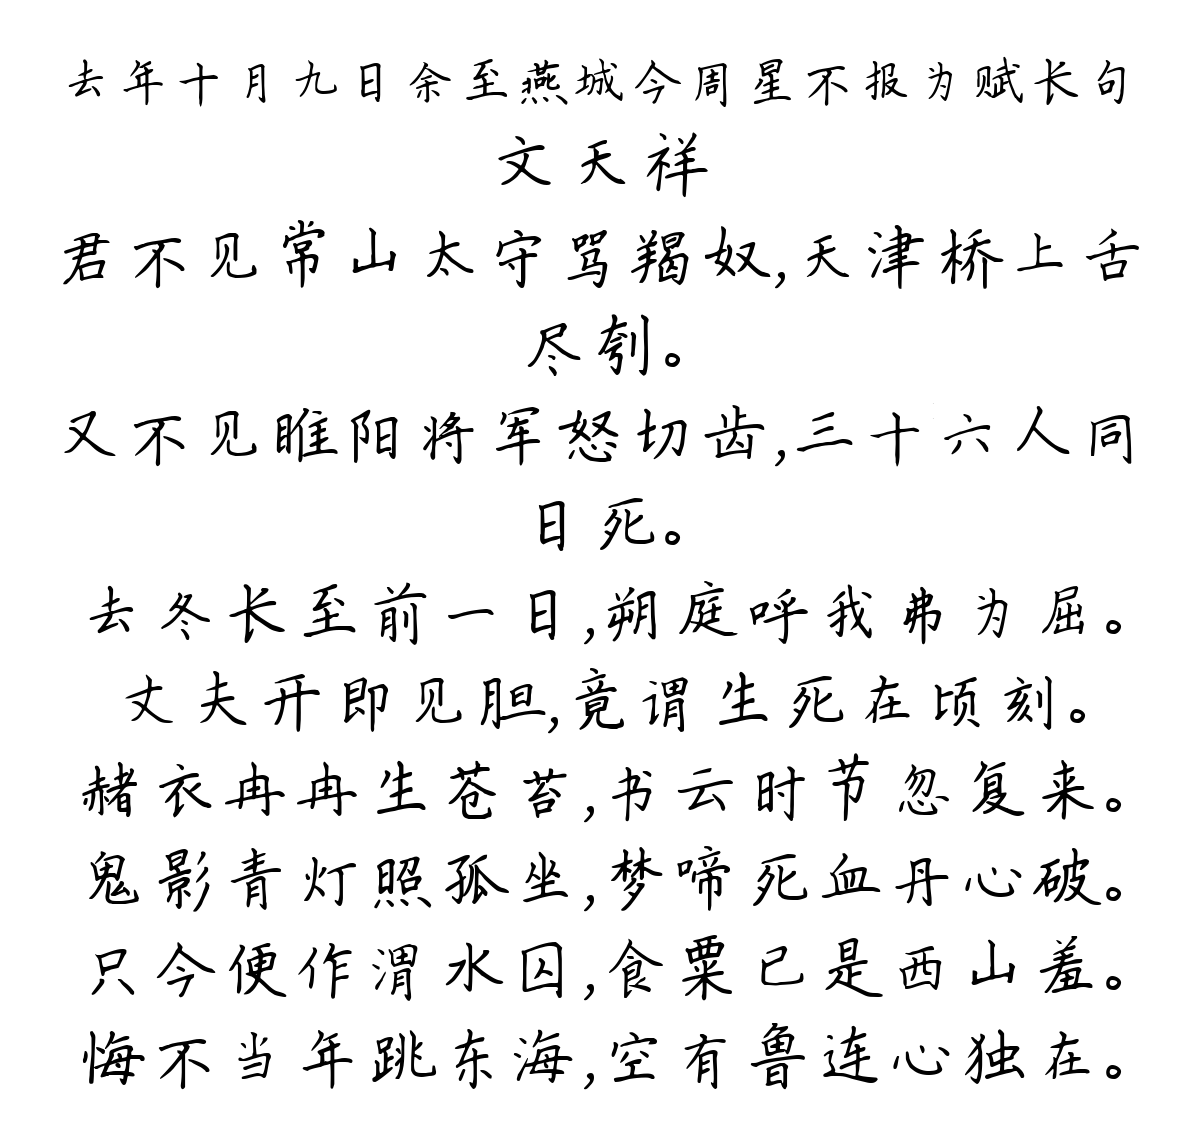 去年十月九日余至燕城今周星不报为赋长句
文天祥
君不见常山太守骂羯奴,天津桥上舌
尽刳。
又不见睢阳将军怒切齿,三十六人同
日死。
去冬长至前一日,朔庭呼我弗为屈。
丈夫开即见胆,竟谓生死在顷刻。
赭衣冉冉生苍苔,书云时节忽复来。
鬼影青灯照孤坐,梦啼死血丹心破。
只今便作渭水囚,食粟已是西山羞。
悔不当年跳东海,空有鲁连心独在。